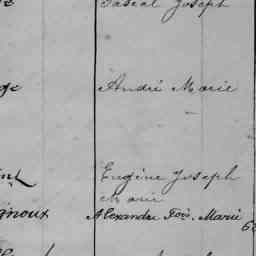 Pascal Joseph
ge
André Marie
Eugène Joseph
Marie
gnoux Alexandre Fois. Marie